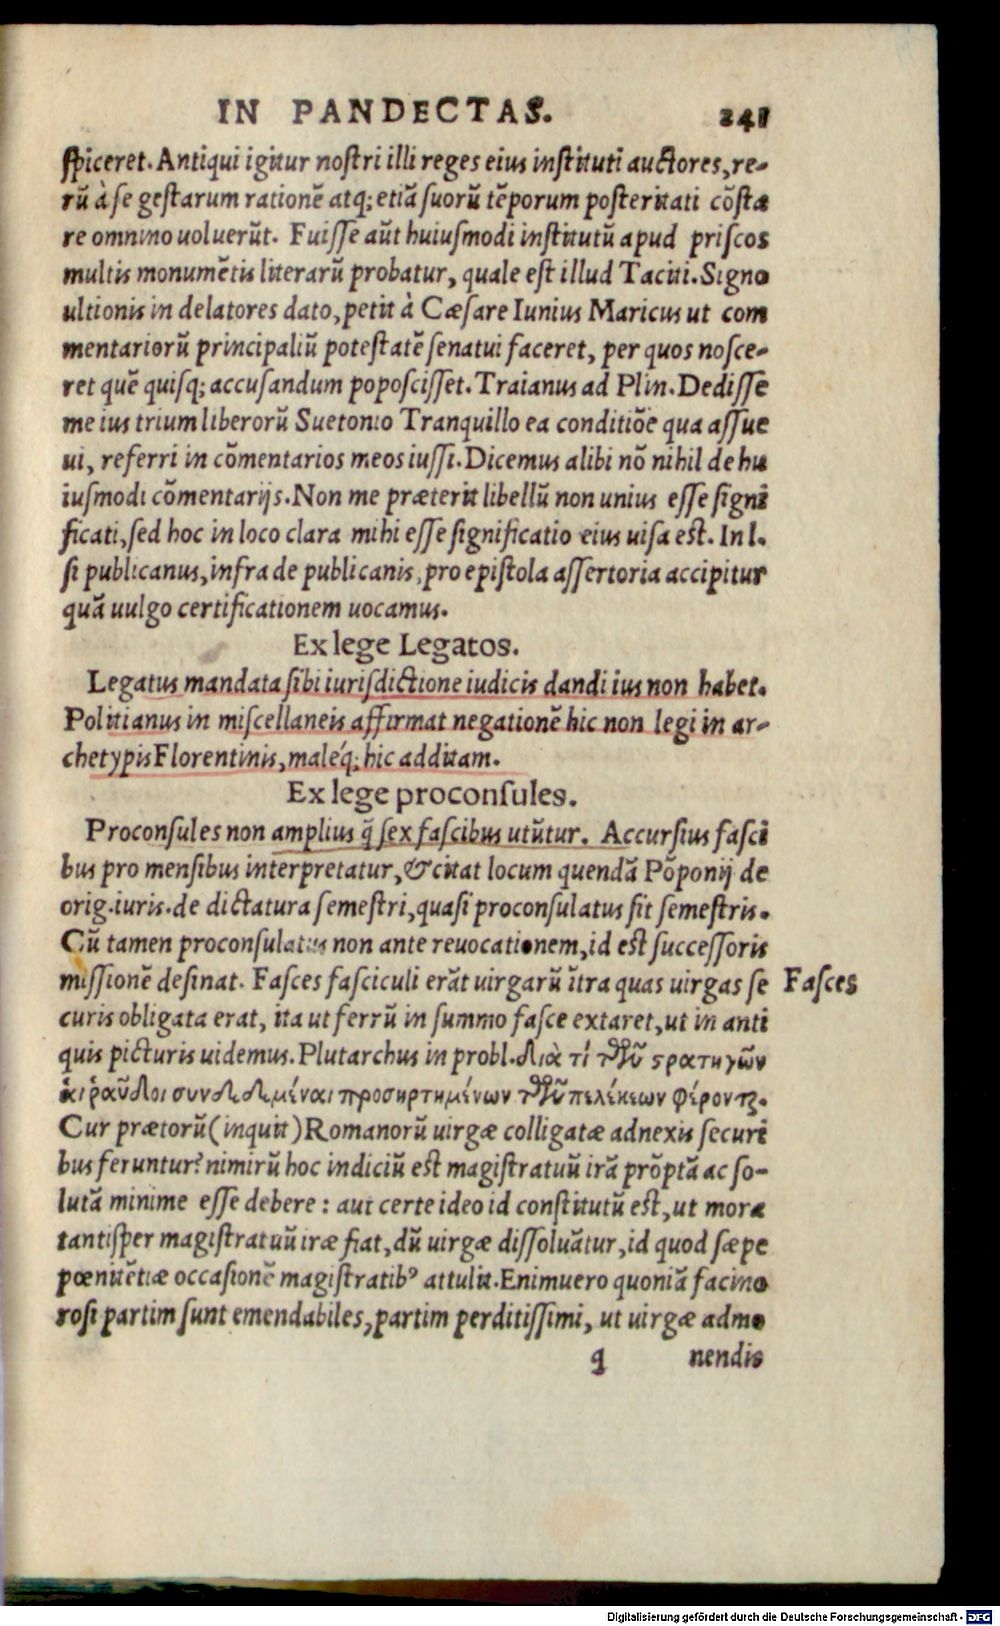 IN PANDECTAS. 241
ſpiceret. Antiqui igitur noſtri illi reges eius inſtituti auctores, re-
rũ à ſe geſtarum rationẽ atq; etiã ſuorũ tẽporum poſteritati cõſta
re omnino uoluerũt. Fuiſſe aũt huiuſmodi inſtitutũ apud priſcos
multis monumẽtis literarũ probatur, quale eſt illud Taciti. Signo
ultionis in delatores dato, petit à Cæſare Iunius Maricus ut com
mentariorũ principaliũ poteſtatẽ ſenatui faceret, per quos noſce-
ret quẽ quiſq; accuſandum popoſciſſet. Traianus ad Plin. Dediſſe
me ius trium liberorũ Suetonio Tranquillo ea conditiõe qua aſſue
ui, referri in cõmentarios meos iuſſi. Dicemus alibi nõ nihil de hu
iuſmodi cõmentarijs. Non me præterit libellũ non unius eſſe ſigni
ficati, ſed hoc in loco clara mihi eſſe ſignificatio eius uiſa eſt. In l.
ſi publicanus, infra de publicanis, pro epiſtola aſſertoria accipitur
quã uulgo certificationem uocamus.
Ex lege Legatos.
Legatus mandata ſibi iuriſdictione iudicis dandi ius non habet.
Politianus in miſcellaneis affirmat negationẽ hic non legi in ar-
chetypis Florentinis, maléq; hic additam.
Ex lege proconſules.
Proconſules non amplius q̃ ſex faſcibus utũtur. Accurſius faſci
bus pro menſibus interpretatur, & citat locum quendã Põponij de
orig. iuris. de dictatura ſemeſtri, quaſi proconſulatus ſit ſemeſtris.
Cũ tamen proconſulatus non ante reuocationem, id eſt ſucceſſoris
miſſionẽ deſinat. Faſces faſciculi erãt uirgarũ ĩtra quas uirgas ſe
Faſces
curis obligata erat, ita ut ferrũ in ſummo faſce extaret, ut in anti
quis picturis uidemus. Plutarchus in probl. διὰ τί τῶν στρατηγῶν
αἱ ῥάβδοι συνδεδεμέναι προσηρτημένων τῶν πελέκεων φέρονται.
Cur prætorũ (inquit) Romanorũ uirgæ colligatæ adnexis ſecuri
bus feruntur? nimirũ hoc indiciũ eſt magiſtratuũ irã prõptã ac ſo-
lutã minime eſſe debere: aut certe ideo id conſtitutũ eſt, ut mora
tantiſper magiſtratuũ iræ fiat, dũ uirgæ diſſoluãtur, id quod ſæpe
pœnitẽtiæ occaſionẽ magiſtratibꝰ attulit. Enimuero quoniã facino
roſi partim ſunt emendabiles, partim perditiſſimi, ut uirgæ admo
q nendis
Digitalisierung gefördert durch die Deutsche Forschungsgemeinschaft - DFG